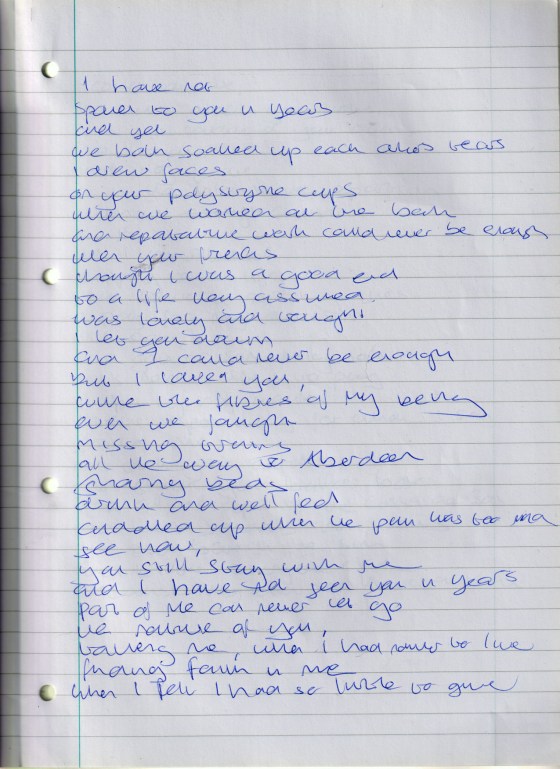 I have not
spoken to you in years
and yet
we both soaked up each others tears
I drew faces
on your polystyrene cups
when we worked at the bank
and repetitive work could never be enough
when your friends
thought I was a good end
to a life they assumed
was lonely and
I let you down
and I could never be enough
but I loved you,
with the fibres of my being
even we fought
missing trains
all the way to Aberdeen
sharing beds
drunk and well fed
cuddled up when the pain was too much
see now,
you still stay with me
and I have not seen you in years
part of me can never let go
the nature of you,
taking me, when I had nowhere to live
finding faith in me
when I felt I had so little to give